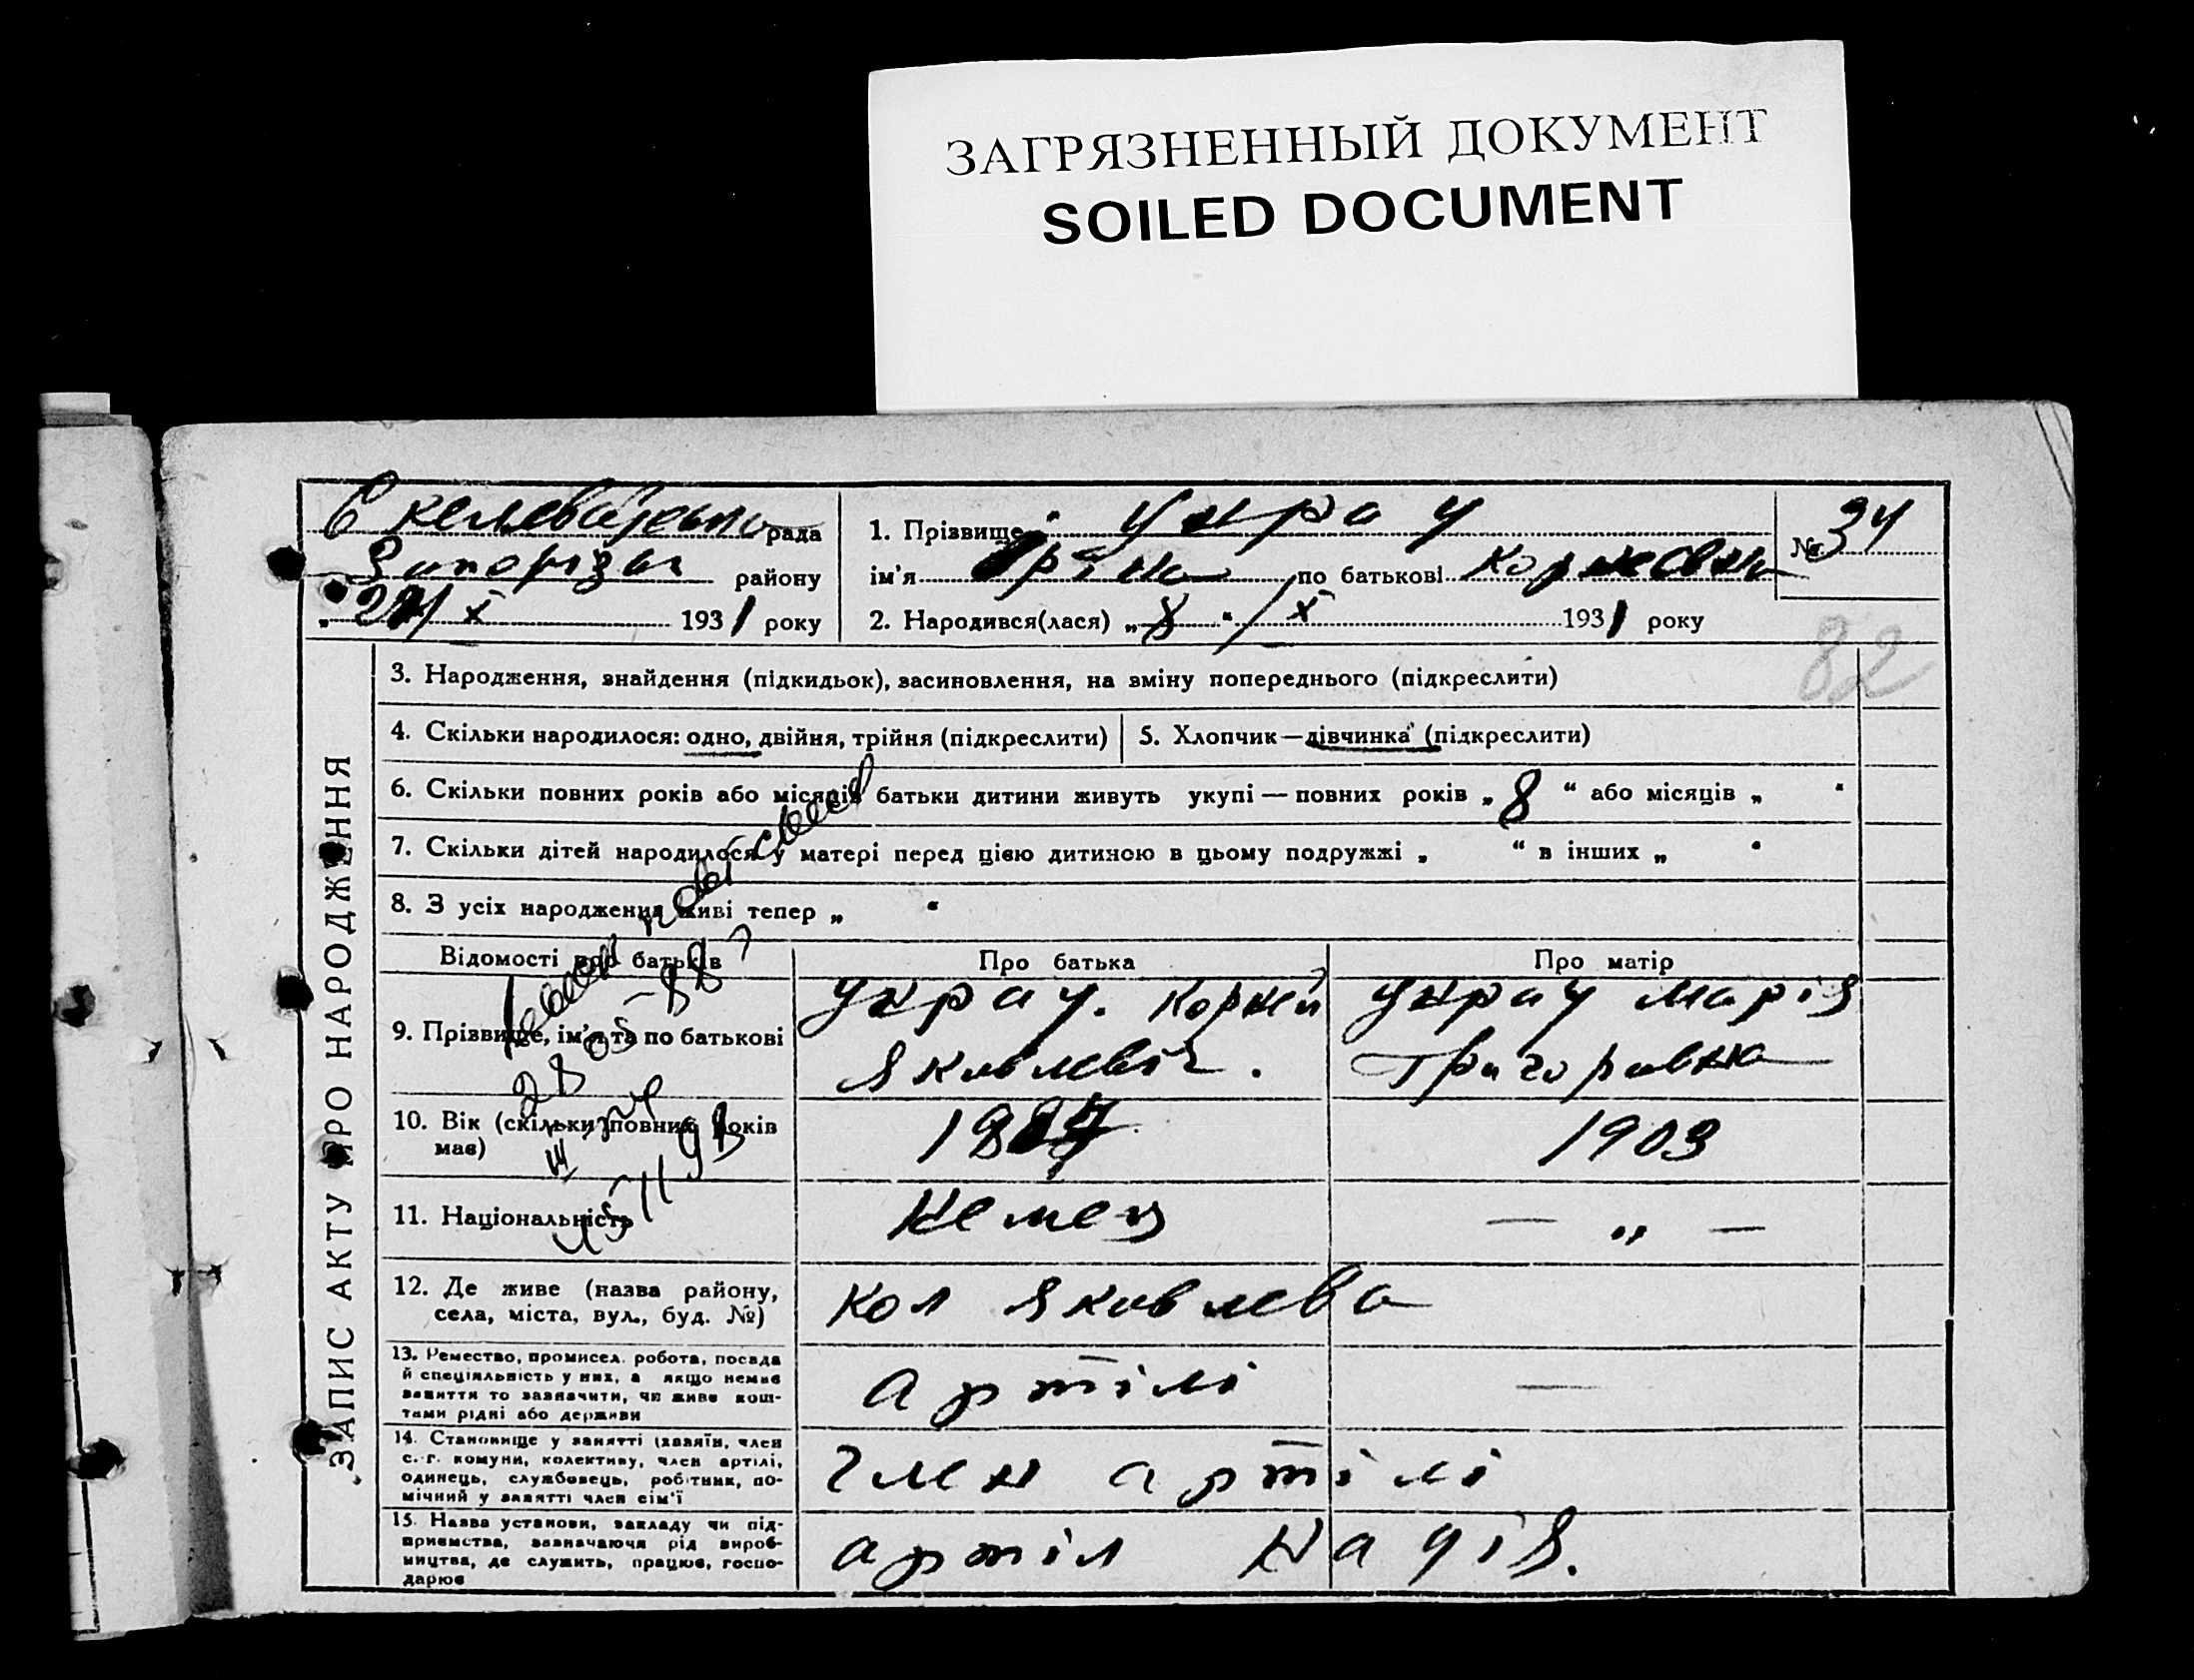 ЗАГРЯЗНЕННЫЙ ДОКУМЕНТ
SOILED DOCUMENT
рада
району
X 1931 року
1. Прізвище Унрау
ім'я по батькові
2. Народився(лася) „8“ X 1931 року
№ 34
82
„ЗАПИС АКТУ ПРО НАРОДЖЕННЯ
3. Народження, знайдення (підкидьок), засиновлення, на зміну попереднього (підкреслити)
4. Скільки народилося: одно, двійня, трійня (підкреслити)
5. Хлопчик—дівчинка (підкреслити)
6. Скільки повних років або місяців батьки дитини живуть укупі — повних років „8“ або місяців „ “
7. Скільки дітей народилося у матері перед цією дитиною в цьому подружжі „ “ в інших „ “
8. З усіх народження живі тепер „ “
Відомості про батьків
Про батька
Про матір
9. Прізвище, ім'я та по батькові
Унрау. Корней
Яковлевіч.
Унрау Марія
Григоровна
10. Вік (скільки повних років
має)
1903
11. Національність
Немец
— „ —
12. Де живе (назва району,
села, міста, вул., буд. №)
Кол Яковлева
13. Ремество, промисел, робота, посада
й спеціяльність у них, а якщо немає
заняття то зазначити, чи живе кош-
тами рідні або держави
артілі
—
14. Становище у занятті (хазяїн, член
с.-г. комуни, колективу, член артілі,
одинець, службовець, робітник, по-
мічний у занятті член сім'ї
Член артілі
15. Назва установи, закладу чи під-
приємства, зазначаючи рід вироб-
ництва, де служить, працює, госпо-
дарює
артіл Надія.